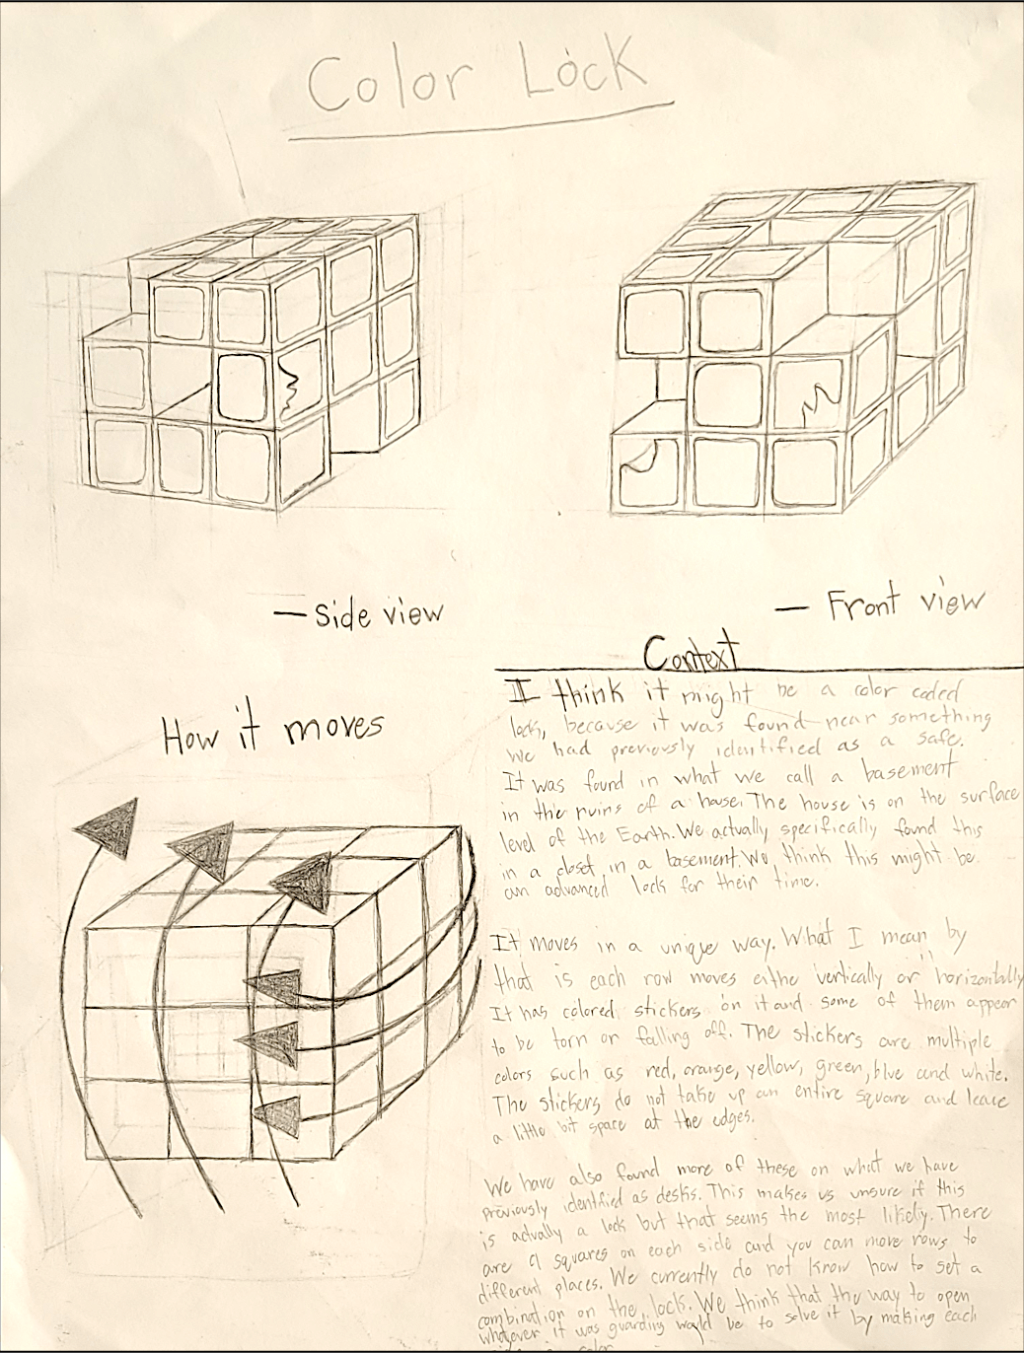 Color Lock
— Side view
— Front view
Context
How it moves
I think it might be a color coded
lock, because it was found near something
we had previously identified as a safe.
It was found in what we call a basement
in the ruins of a house. The house is on the surface
level of the Earth. We actually specifically found this
in a closet in a basement. We think this might be
an advanced lock for their time.
It moves in a unique way. What I mean by
that is each row moves eithe vertically or horizontally
It has colored stickers on it and some of them appear
to be torn or falling off. The stickers are multiple
colors such as red, orange, yellow, green, blue and white.
The stickers do not take up an entire square and leave
a little bit space at the edges.
We have also found more of these on what we have
previously identified as desks. This makes us unsure if this
is actually a lock but that seems the most likely. There
are 9 squares on each side and you can move rows to
different places. We currently do not know how to set a
combination on the lock. We think that the way to open
whatever it was guarding would be to solve it by making each
color